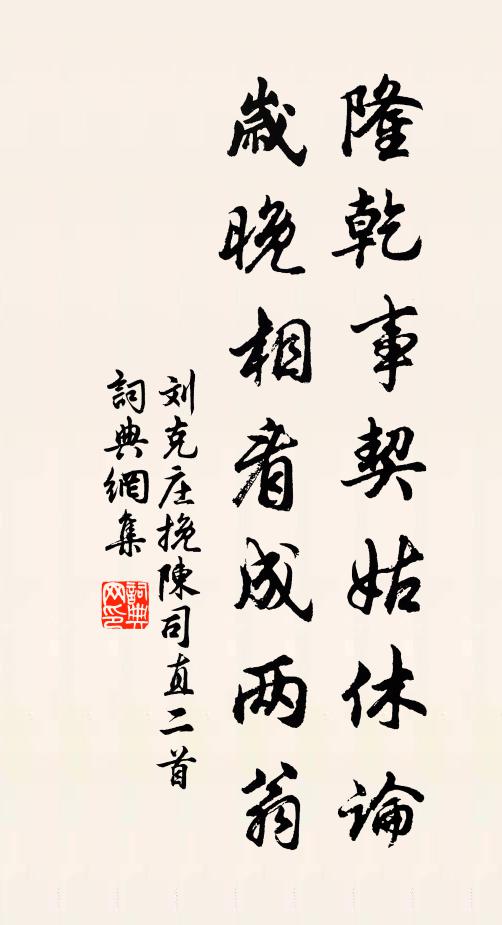 隆乾事契姑休論
歲晚相看成两翁
刘克庄挽陳司直二首
詞典網集
詞典网印